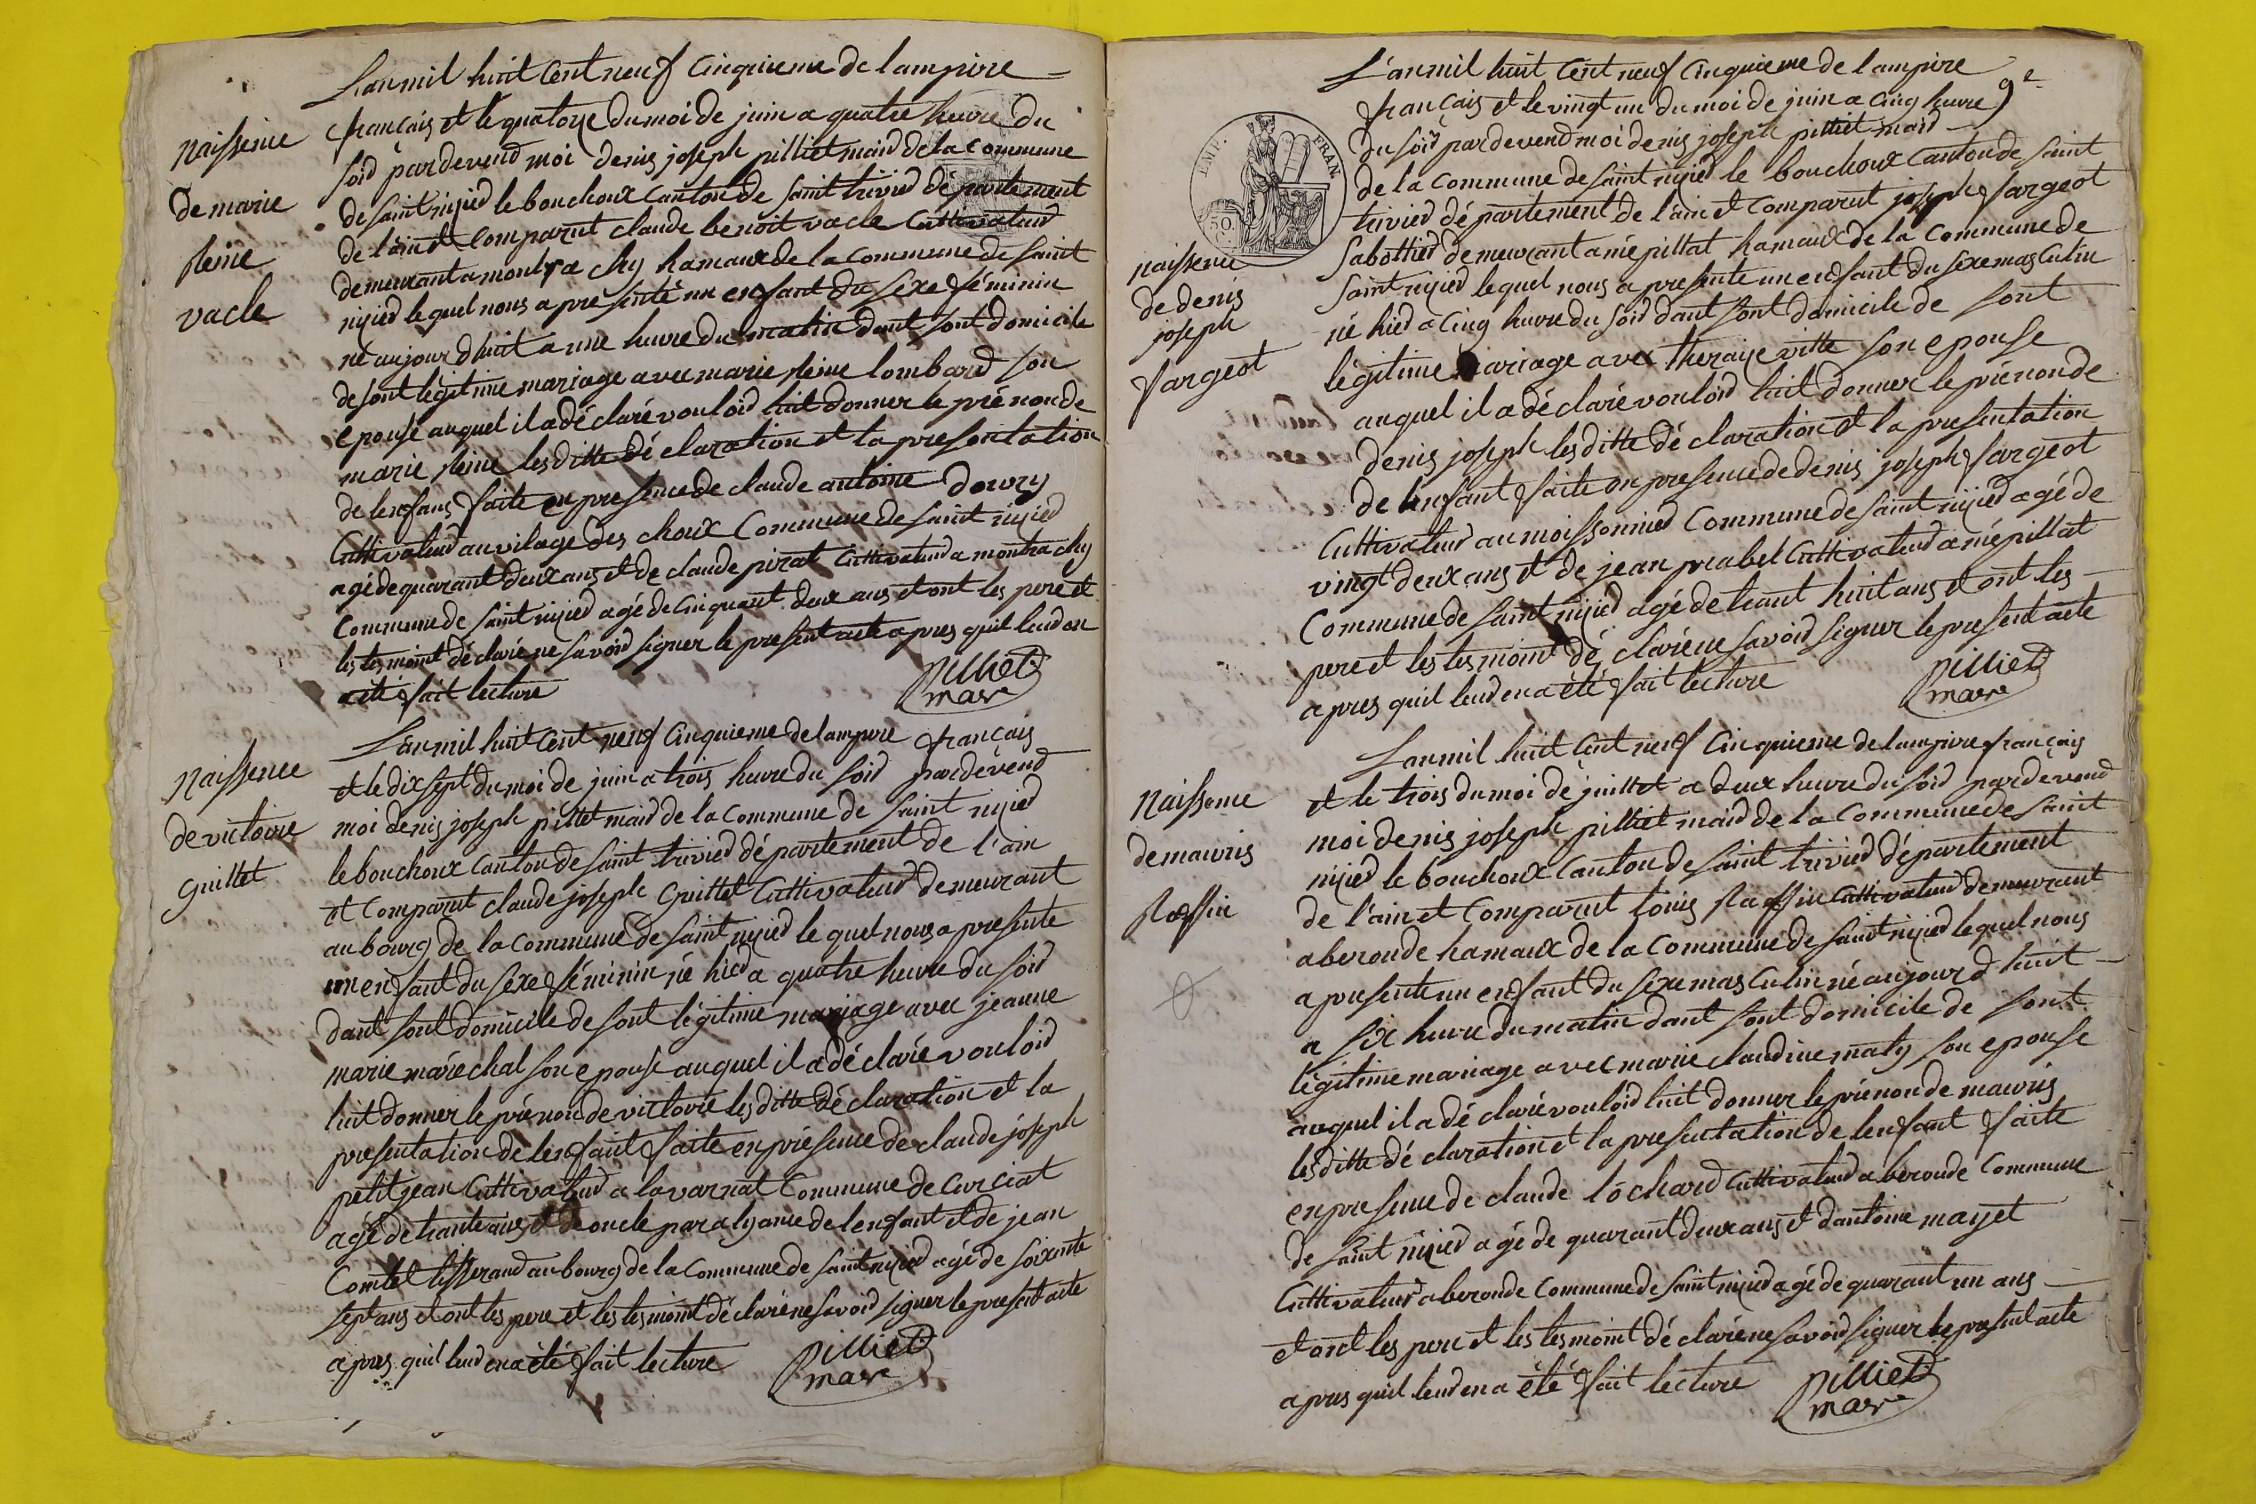 L'an mil huit Cent neuf Cinquieme de lampire
français et le quatorze du moi de juin a quatre heure du
soid par devend moi denis joseph pilliet maid de la Commune
de saint nizied le bouchoux Canton de saint trivied département
de l'ain et Comparut claude benoit vacle Cultivateud
demeurant a montra chy hamaux de la Commune de saint
nizied lequel nous a presenté un enfant du sexe féminin
né aujourdhuit a une heure du matin dant sont domicile
de sont légitime mariage avec marie Reine lombard son
epouse auquel il a déclaré vouloid luit donner le prénon de
marie Reine lesditte déclaration et la presentation
de lenfans faite en presence de claude antoine douvry
Cultivateud au vilage des choux Commune de saint nizied
agé de quarant deux ans et de claude pirat Cultivateud a montrachy
Commune de saint nizied agé de Cinquant deux ans et ont les pere et
les tesmoint déclaré ne savoid signer le present acte apres quil leud en
a été fait lecture
pilliet
mair
naissence
de marie
Reine
vacle
L'an mil huit Cent neuf Cinquieme de lampire français
et le dix sept du moi de juin a trois heure du soid par devend
moi denis joseph pilliet maid de la Commune de saint nizied
le bouchoux Canton de saint trivied département de l'ain
et Comparut claude joseph Guillet Cultivateud demeurant
au bourg de la Commune de saint nizied lequel nous a presente
un enfant du sexe féminin né hied a quatre heure du soid
dant sont domicile de sont légitime mariage avec jeanne
marie maréchal son epouse auquel il a déclaré vouloid
luit donner le prénon de victoire lesditte déclaration et la
presentation de lenfant faite en présence de claude joseph
petitjean Cultivateud a lavarnat Commune de Curciat
agé de trante ans et de oncle de lenfant et de jean
Comtet tisserand au bourg de la Commune de saint nizied agé de soixante
sept ans et ont les pere et les tesmoint déclaré ne savoid signer le present acte
apres quil leud en a été fait lecture
pilliet
mair
naissence
de victoire
guillet
9e
L'an mil huit Cent neuf Cinquieme de lampire
français et le vingt un du moi de juin a Cinq heure
du soid par devend moi denis joseph pilliet maid
de la Commune de saint nizied le bouchoux Canton de saint
trivied département de l'ain et Comparut joseph fargeot
sabottied demeurant a mépillat hamaux de la Commune de
saint nizied lequel nous a presente un enfant du sexe masculin
né hied a Cinq heure du soid dant sont domicile de sont
légitime mariage avec theraize vitte son epouse
auquel il a déclaré vouloid luit donner le prénon de
denis joseph lesditte déclaration et la presentation
de lenfant faite en presence de denis joseph fargeot
Cultivateud au moissonnied Commune de saint nizied agé de
vingt deux ans et de jean prabel Cultivateud a mépillat
Commune de saint nizied agé de trant huit ans et ont les
pere et les tesmoint déclaré ne savoid signer le present acte
apres quil leud en a été fait lecture
pilliet
mair
EMP. FRAN
50.
naissence
de denis
joseph
fargeot
L'an mil huit Cent neuf Cinquieme de lampire français
et le trois du moi de juillet a deux heure du soid par devend
moi denis joseph pilliet maid de la Commune de saint
nizied le bouchoux Canton de saint trivied département
de l'ain et Comparut louis Raffin Cultivateud demeurant
a beronde hamaux de la Commune de saint nizied lequel nous
a presente un enfant du sexe masculin né aujourd huit
a six heure du matin dant sont domicile de sont
légitime mariage avec marie claudine maty son epouse
auquel il a déclaré vouloid luit donner le prénon de mauris
lesditte déclaration et la presentation de lenfant faite
en presence de claude lôchard Cultivateud a beronde Commune
de saint nizied agé de quarant deux ans et dantoine mazet
Cultivateud a beronde Commune de saint nizied agé de quarant un ans
et ont les pere et les tesmoint déclaré ne savoid signer le present acte
apres quil leud en a été fait lecture
pilliet
mair
naissence
de mauris
Raffin